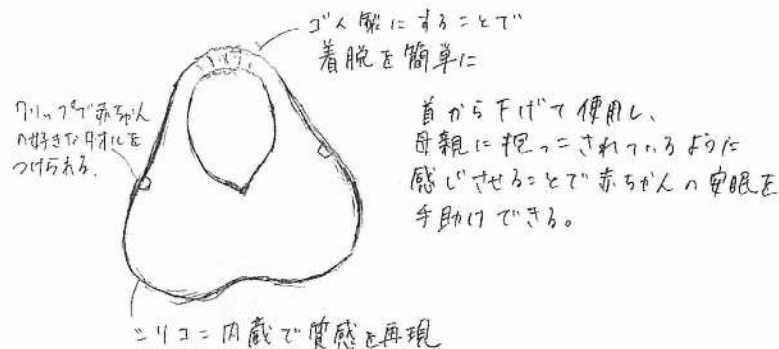 ゴム製にすることで
着脱を簡単に
クリップで赤ちゃん
の好きなタオルを
つけられる。
首から下げて使用し、
母親に抱っこされているように
感じさせることで赤ちゃんの安眠を
手助けできる。
シリコン内蔵で質感を再現